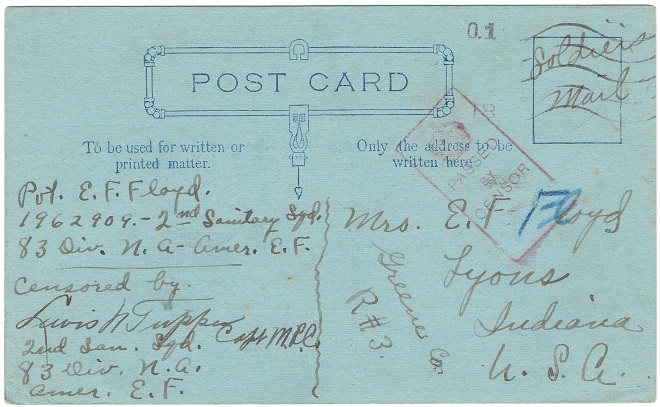 01
Soldiers
Mail
POST CARD
To be used for written or
printed matter.
Only the address to be
written here
PASSED
BY
CENSOR
Pvt. E. F. Floyd.
1962909.- 2nd Sanitary Sqd.
83 Div. N. A- Amer. E. F.
Censored by
Lewis N Tupper
Capt M.R.C.
2nd San. Sqd.
83 Div. N. A.
Amer. E. F.
Mrs. E. F Floyd
Lyons
Greene Co.
R#3.
Indiana
U. S. A.